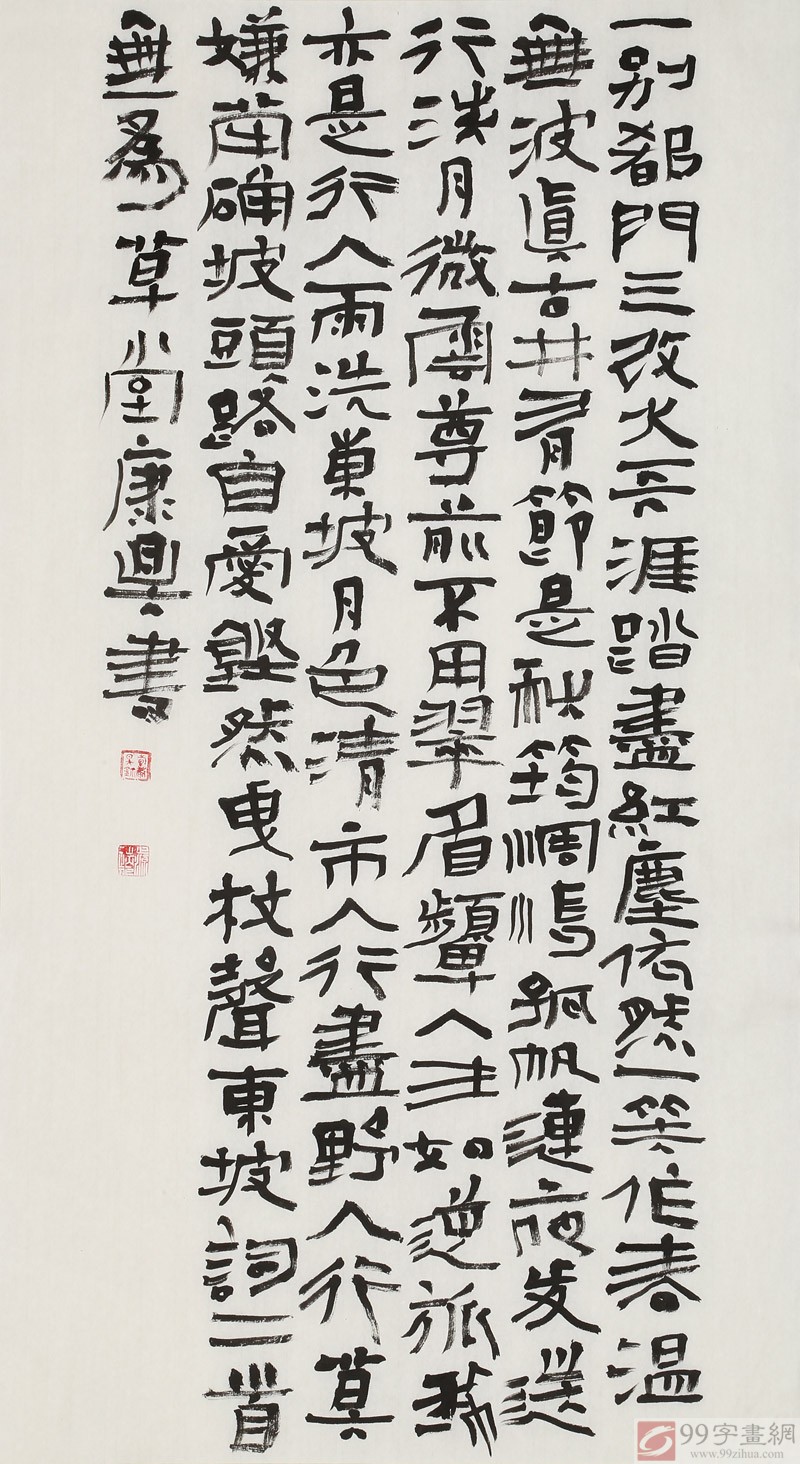 一别都門三改火天涯踏盡紅塵依然一笑作春温
無波眞古井有節是秋筠惆悵孤帆連夜发送
行淡月微雲尊前不用翠眉顰人生如逆旅我
亦是行人雨洗東坡月色清市人行盡野人行莫
嫌犖确坡頭路自愛鏗然曳杖聲東坡詞二首
無為草堂康書
99字畫網
www.99zihua.com